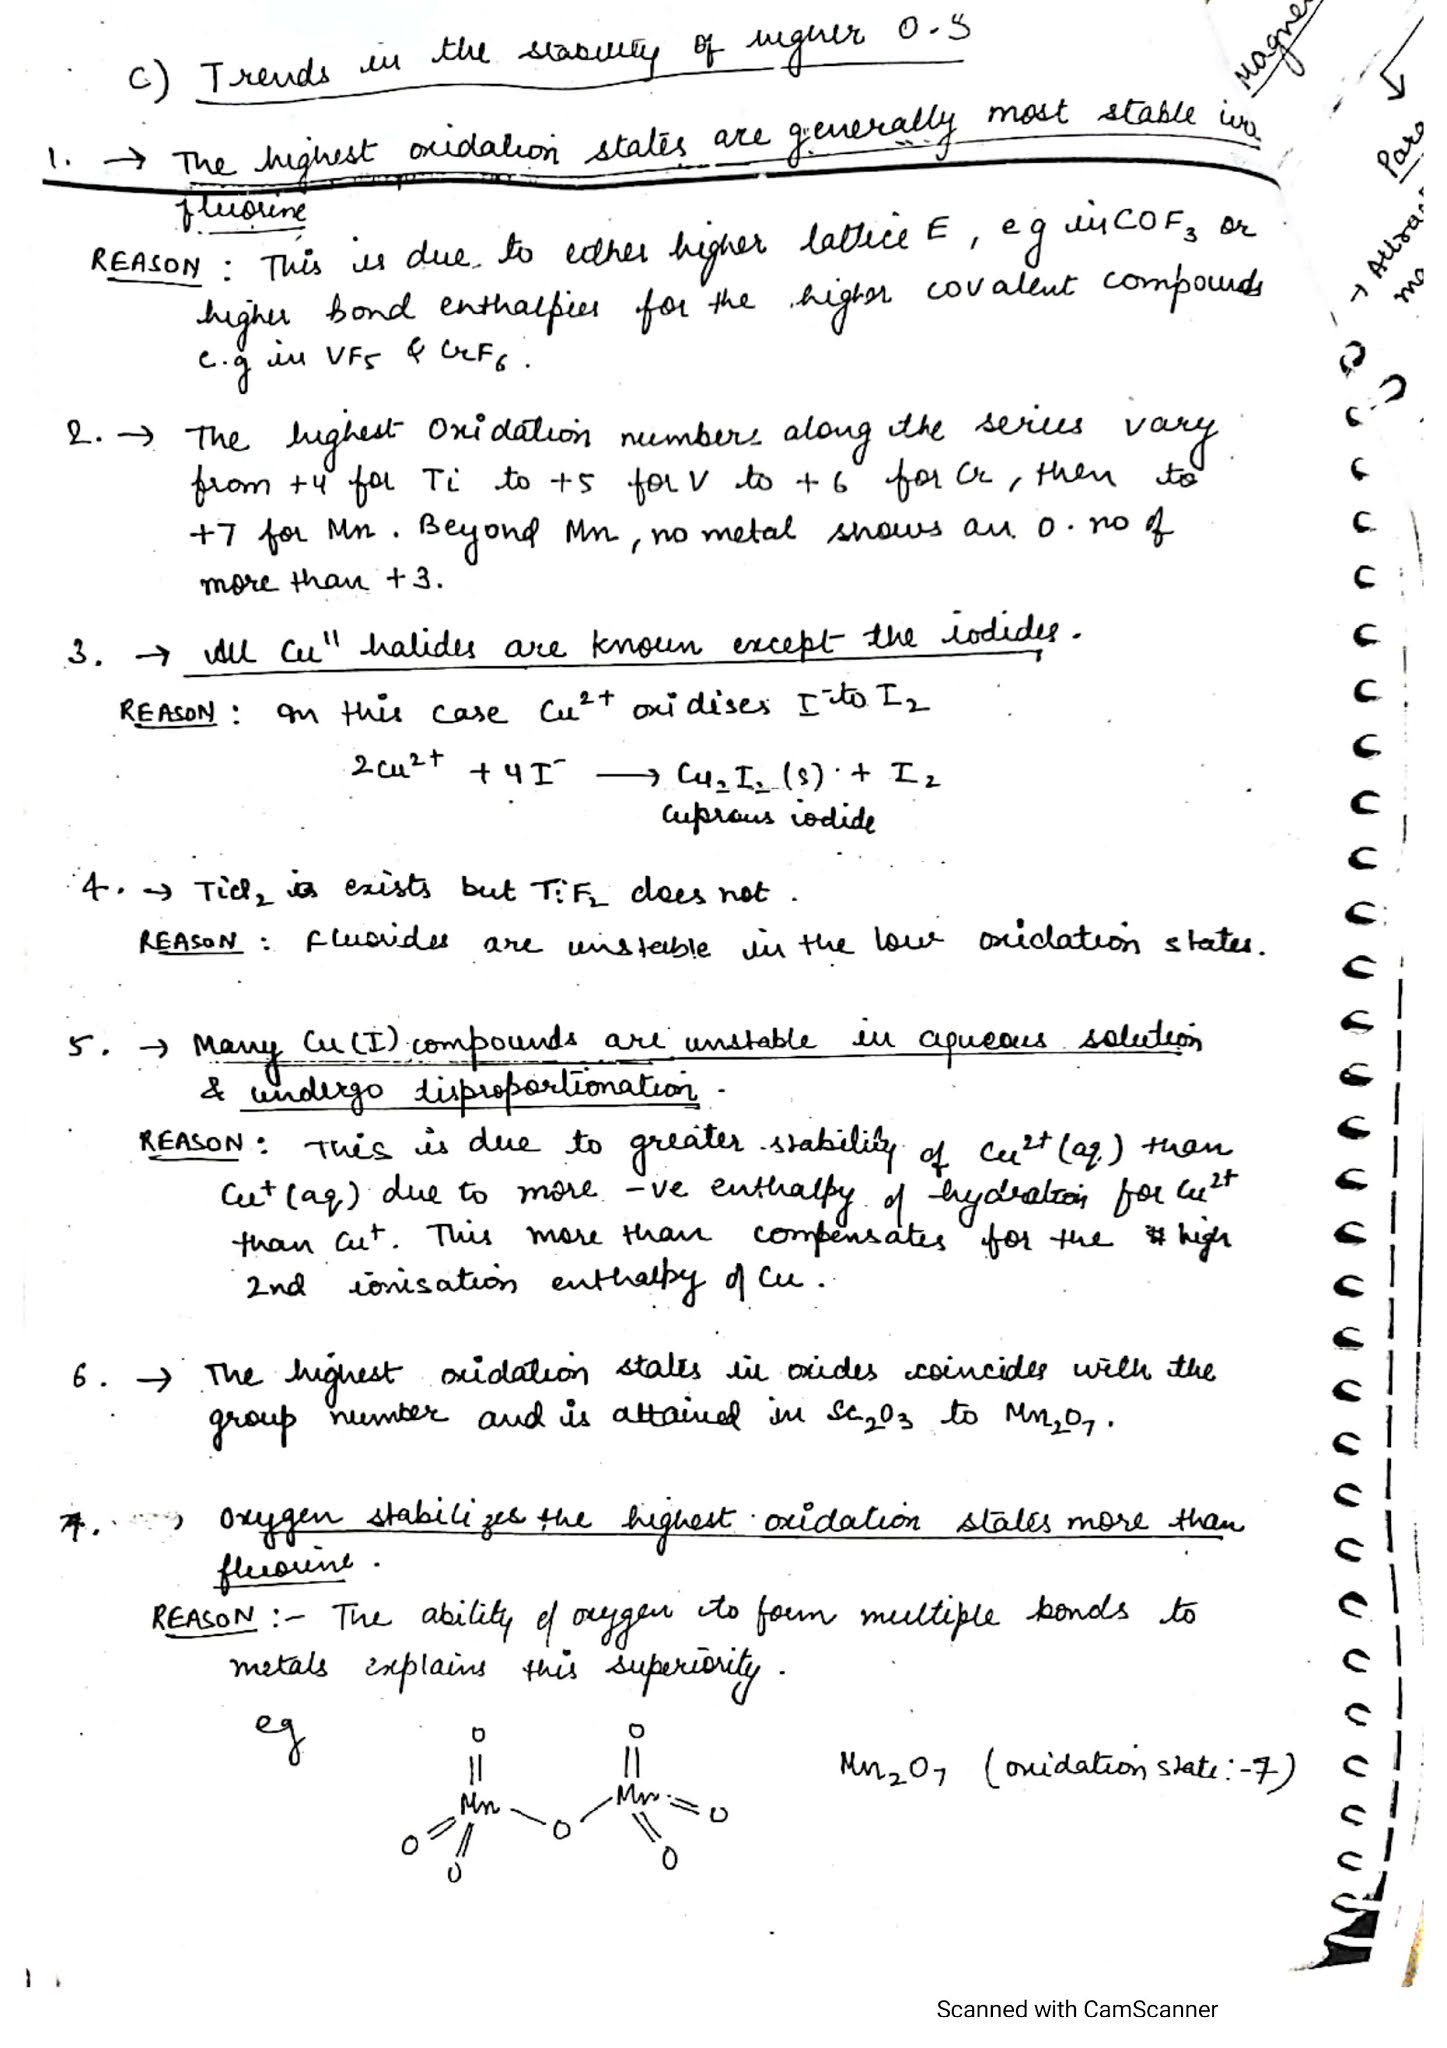 C) Trends in the stability of higher O.S
1. → The highest oxidation states are generally most stable in
fluorine
REASON : This is due to either higher lattice E, eg in COF₃ or
higher bond enthalpies for the higher covalent compounds
e.g in VF₅ & CrF₆.
2. → The highest Oxidation numbers along the series vary
from +4 for Ti to +5 for V to +6 for Cr, then to
+7 for Mn. Beyond Mn, no metal shows an O. no of
more than +3.
3. → All Cuᴵᴵ halides are known except the iodides.
REASON : In this case Cu²⁺ oxidises I⁻ to I₂
2Cu²⁺ + 4I⁻ ⟶ Cu₂I₂ (s) + I₂
cuprous iodide
4. → TiCl₂ is exists but TiF₂ does not.
REASON : Fluorides are unstable in the low oxidation states.
5. → Many Cu(I) compounds are unstable in aqueous solution
& undergo disproportionation.
REASON : This is due to greater stability of Cu²⁺(aq.) than
Cu⁺(aq) due to more -ve enthalpy of hydration for Cu²⁺
than Cu⁺. This more than compensates for the high
2nd ionisation enthalpy of Cu.
6. → The highest oxidation states in oxides coincides with the
group number and is attained in Sc₂O₃ to Mn₂O₇.
7. Oxygen stabilizes the highest oxidation states more than
fluorine.
REASON :- The ability of oxygen to form multiple bonds to
metals explains this superiority.
eg
O O
Mn Mn O
O O O
O
Mn₂O₇ (oxidation state:-7)
Scanned with CamScanner